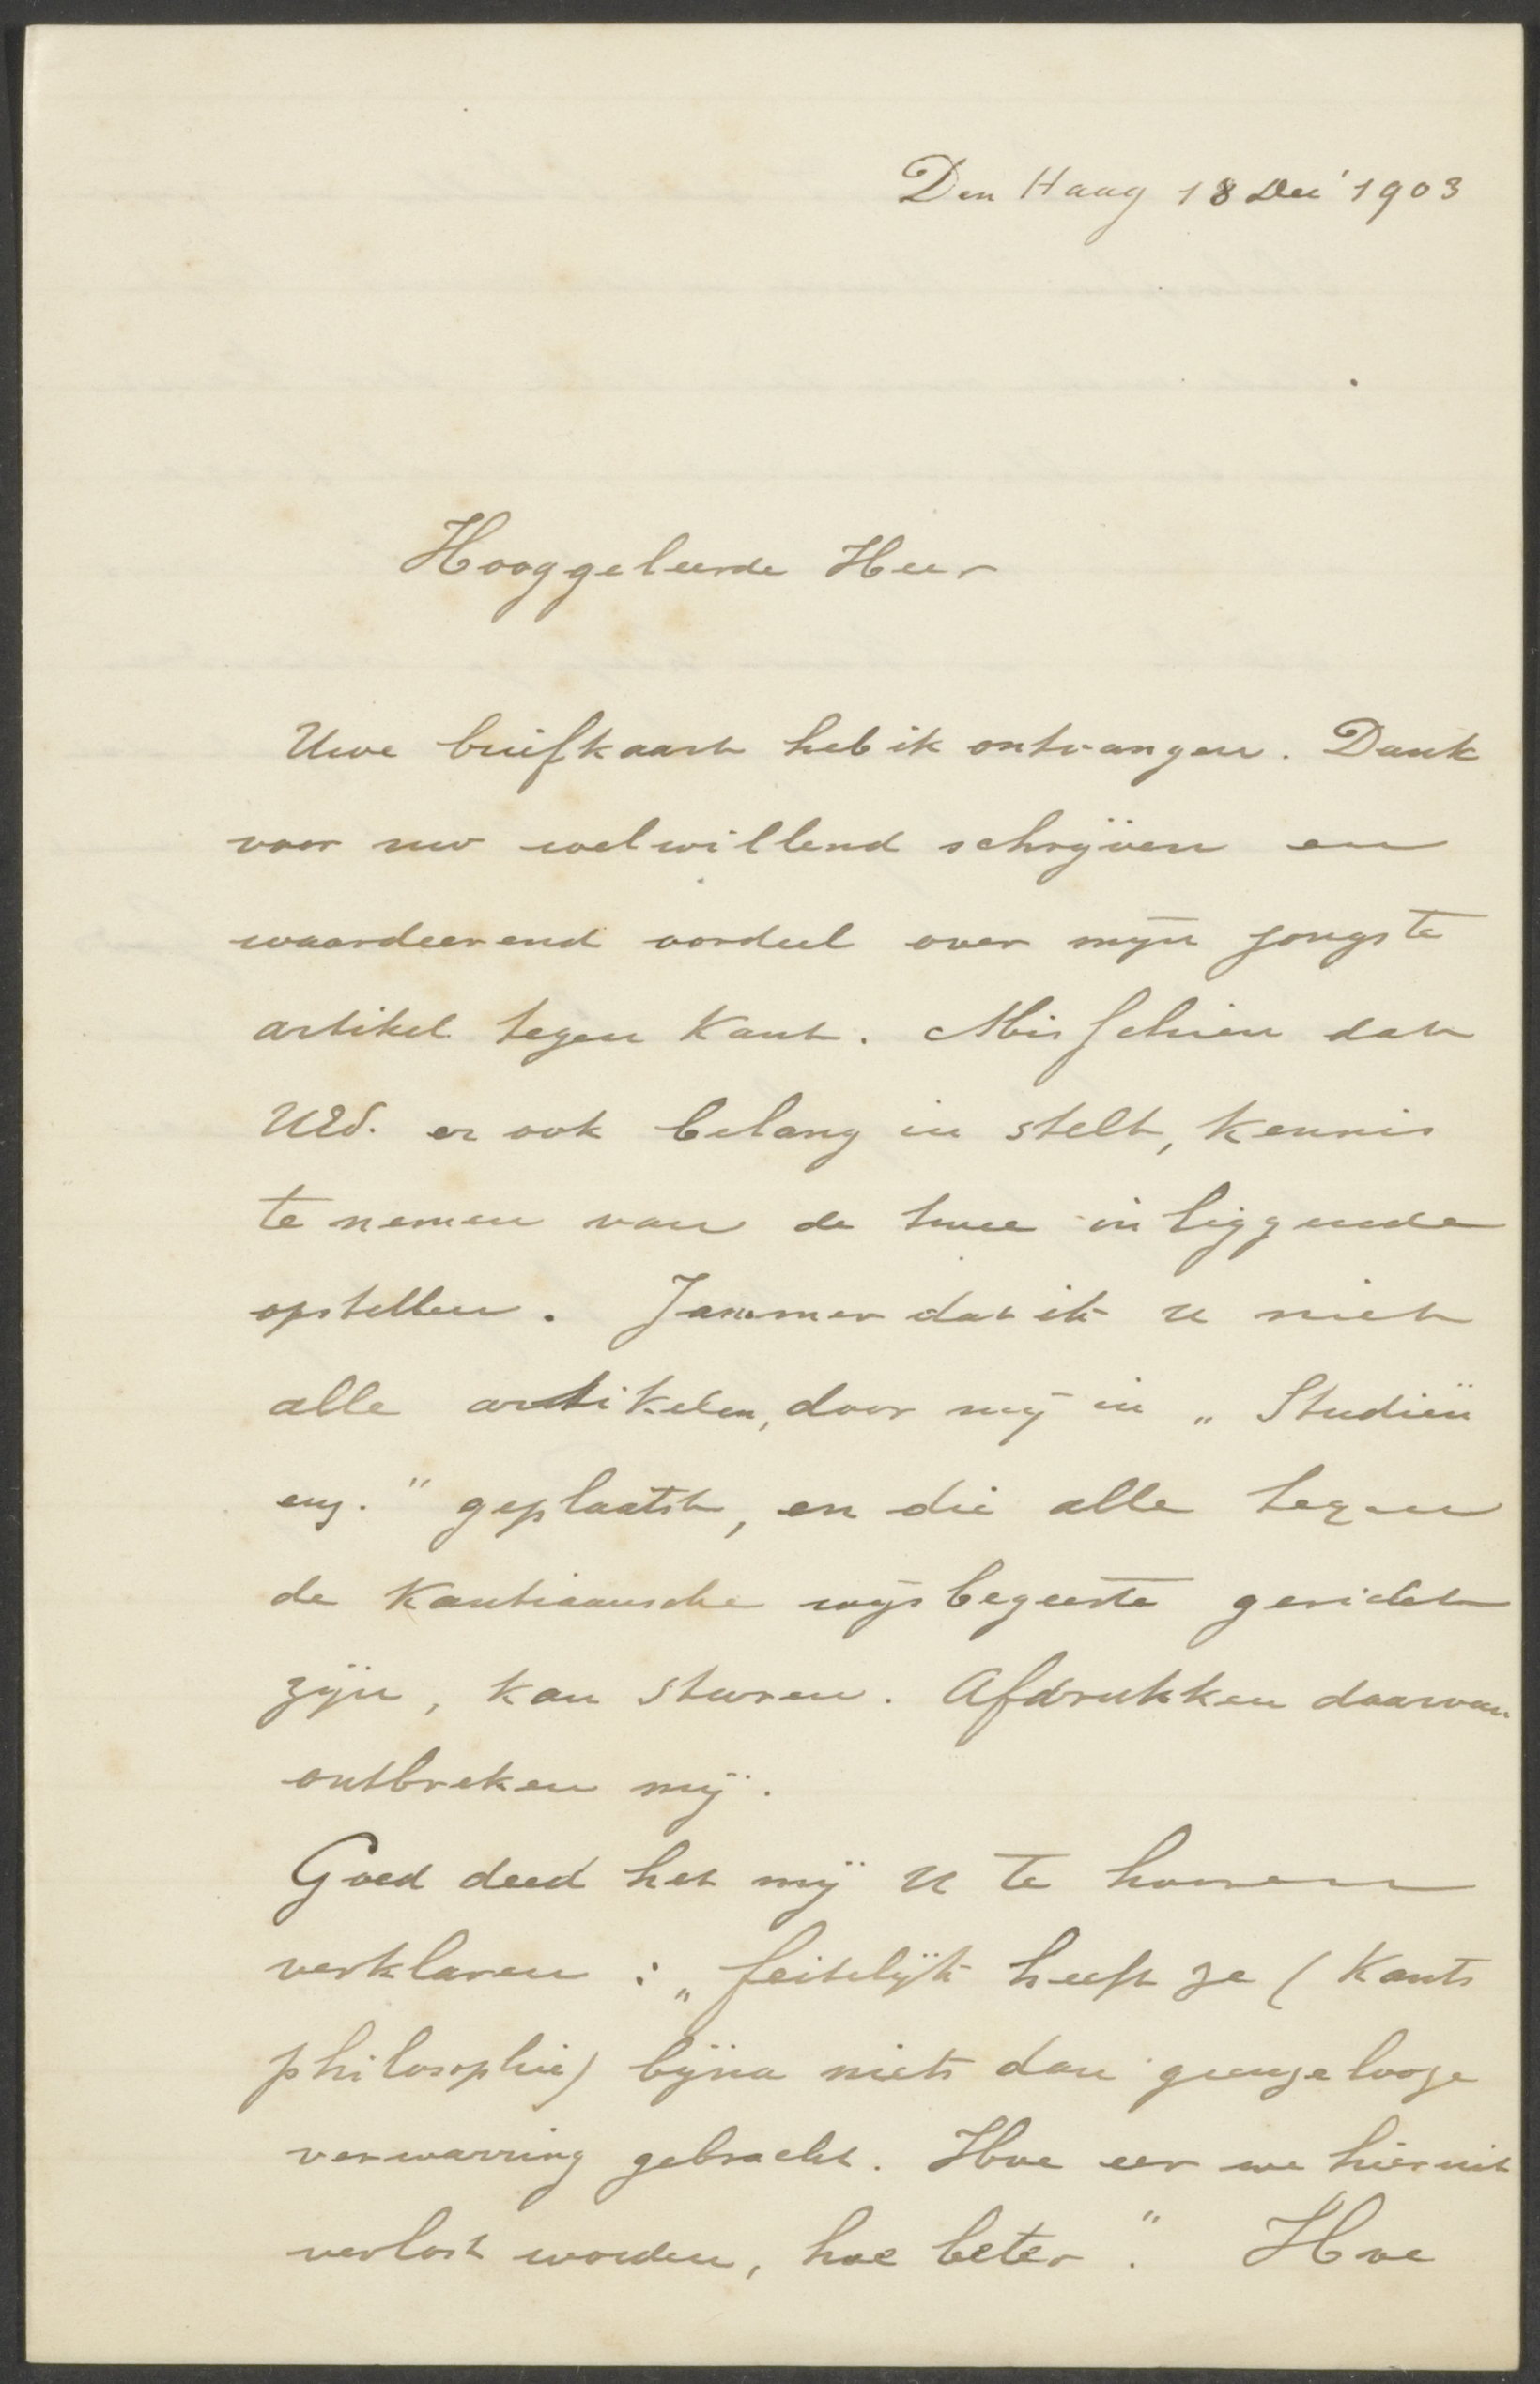 Den Haag 18 Dec 1903
Hooggeleerde Heer
Uwe briefkaart heb ik ontvangen. Dank
voor uw welwillend schrijven en
waardeerend oordeel over mijn jongste
artikel tegen Kant. Misschien dat
UEd. er ook belang in stelt, kennis
te nemen van de twee inliggende
opstellen. Jammer dat ik u niet
alle artikelen, door mij in „Studiën
enz." geplaatst, en die alle tegen
de Kantiaansche wijsbegeerte gericht
zijn, kan sturen. Afdrukken daarvan
ontbreken mij.
Goed deed het mij U te hooren
verklaren: „feitelijk heeft ze (Kants
philosophie) bijna niets dan grenzelooze
verwarring gebracht. Hoe eer we hieruit
verlost worden, hoe beter." Hoe